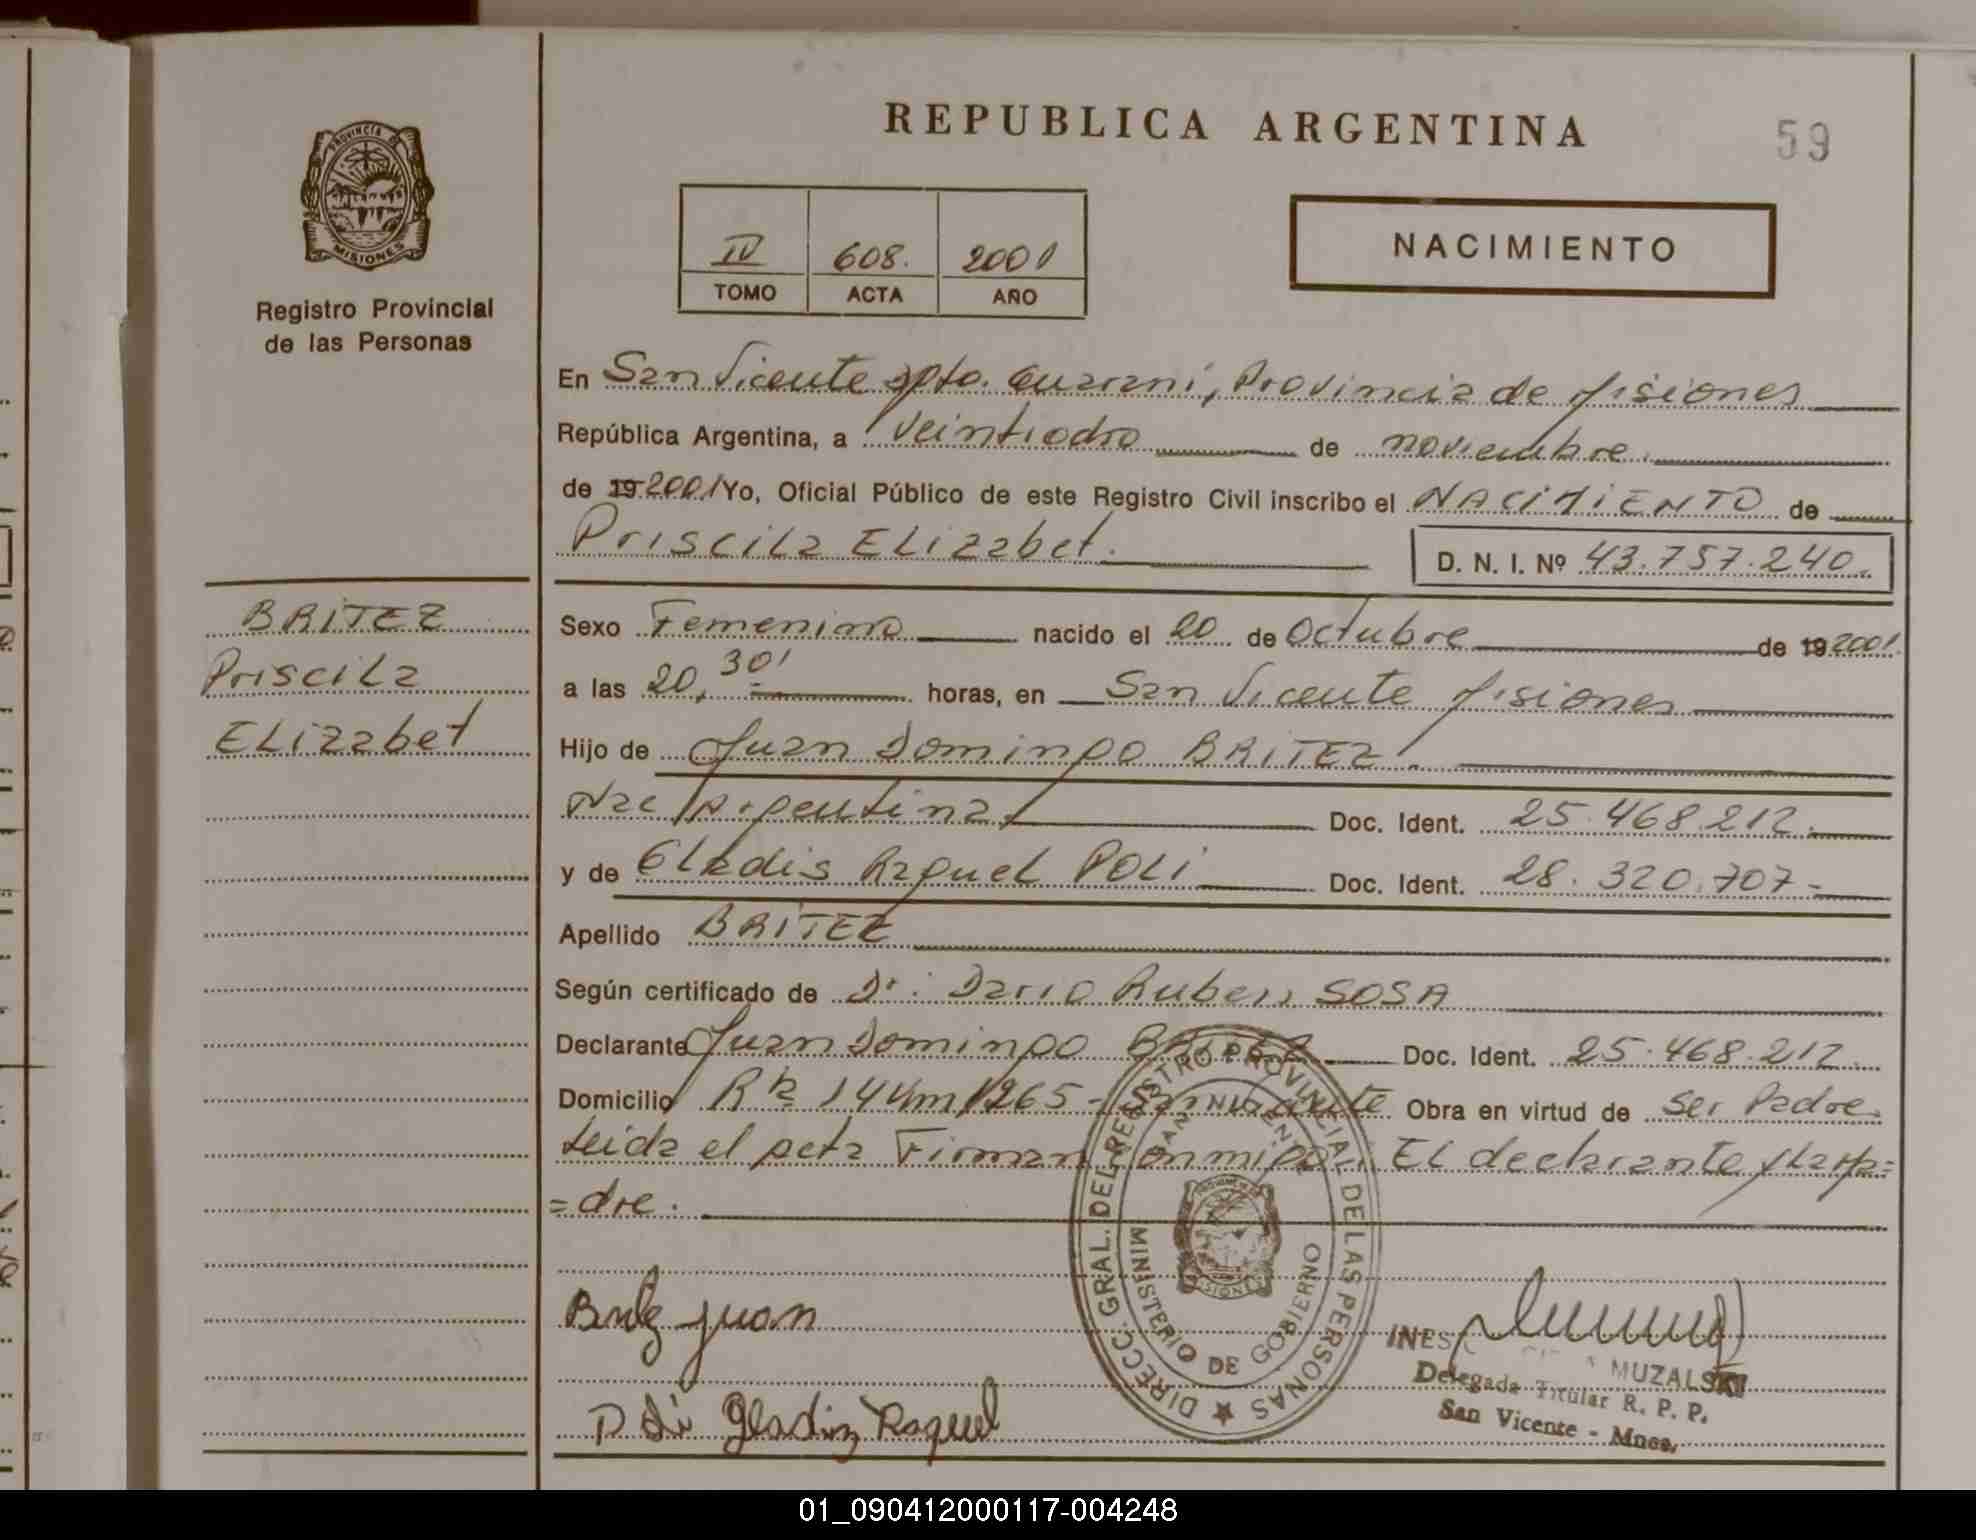 REPUBLICA ARGENTINA
59
PROVINCIA DE
MISIONES
Registro Provincial
de las Personas
IV 608. 2001
TOMO ACTA AÑO
NACIMIENTO
En San Vicente Dpto. Guarani, Provincia de Misiones
República Argentina, a Veintiocho de noviembre
de 19 2001 Yo, Oficial Público de este Registro Civil inscribo el NACIMIENTO de
Priscila Elizabet.
D. N. I. Nº 43.757.240.
BRITEZ
Priscila
Elizabet
Sexo Femenino nacido el 20 de Octubre de 19 2001
a las 20, 30' horas, en San Vicente Misiones
Hijo de Juan Domingo BRITEZ.
Nac Argentina Doc. Ident. 25.468.212.
y de Gladis Raquel POLI Doc. Ident. 28.320.707-
Apellido BRITEZ
Según certificado de Dr. Dario Ruben SOSA
Declarante Juan Domingo BRITEZ Doc. Ident. 25.468.212.
Domicilio 14 Km 1265- San Vicente Obra en virtud de Ser Padre.
Leida el acta Firman Conmigo: El declarante y La Ma=
=dre.
DIRECC. GRAL. DEL REGISTRO PROVINCIAL DE LAS PERSONAS
MINISTERIO DE GOBIERNO
SAN VICENTE
Britez Juan
INES MUZALSKI
Delegada Titular R. P. P.
San Vicente - Mnes.
Poli Gladiz Raquel
01_090412000117-004248